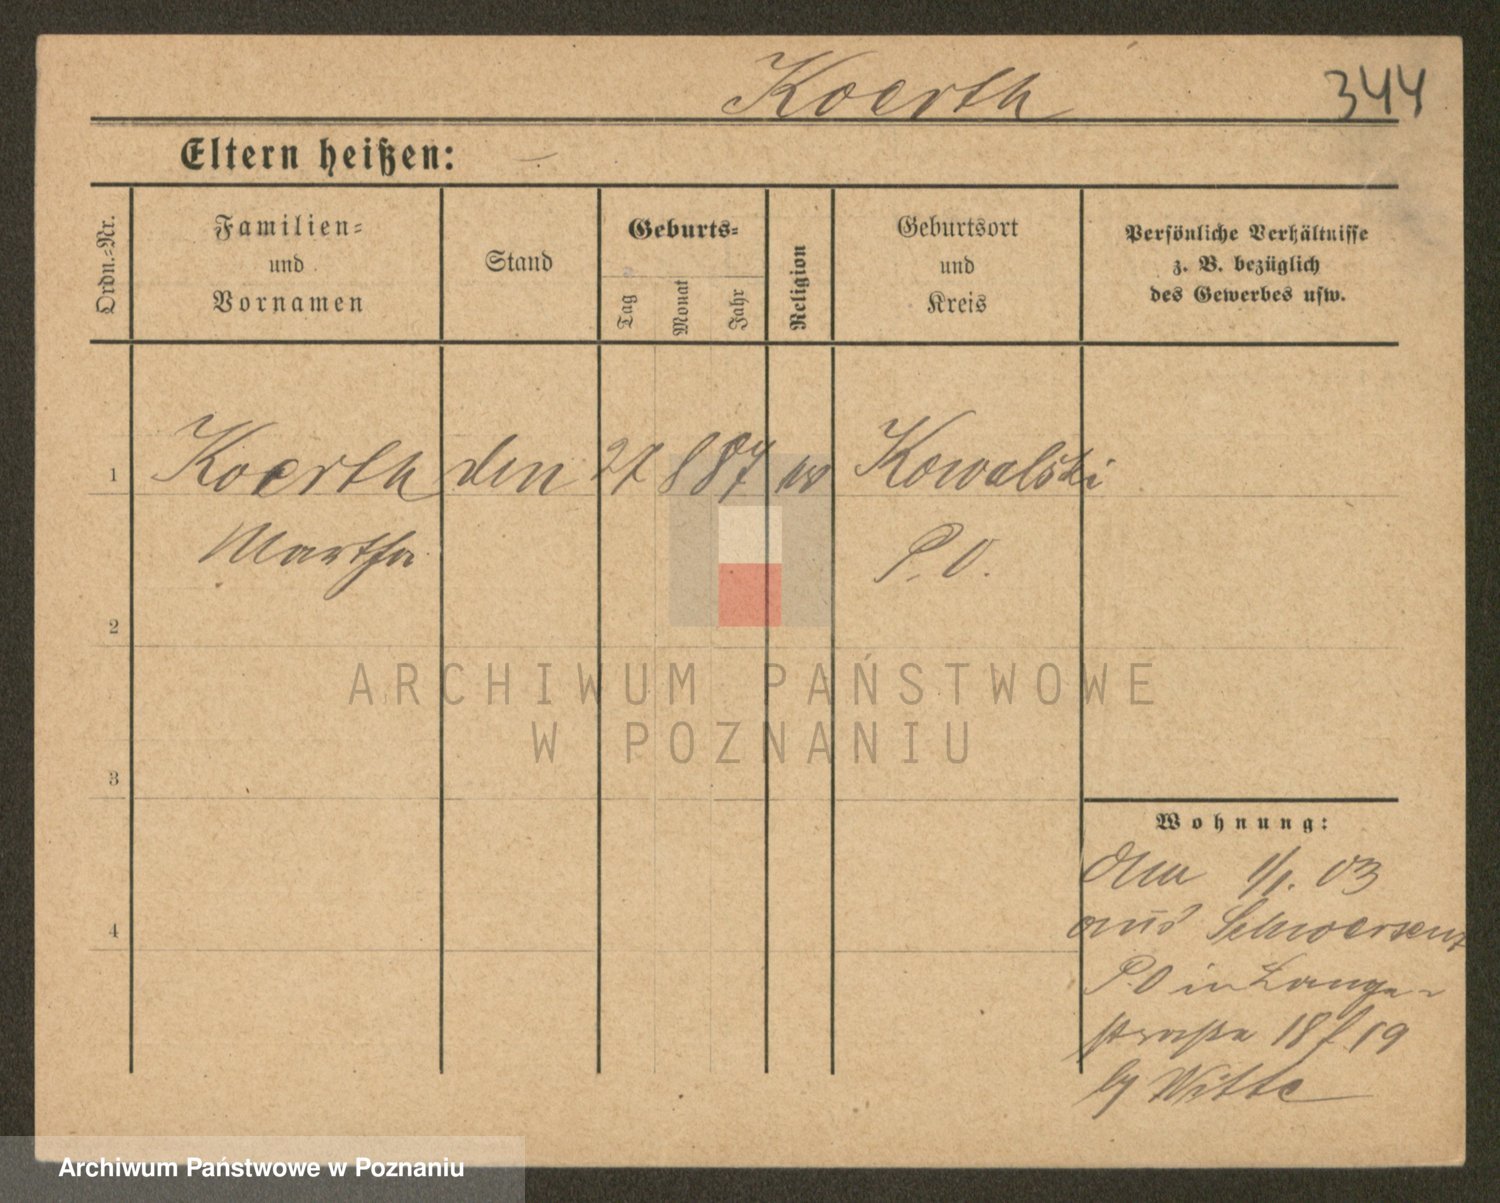 Koerth 344
Eltern heißen:
Ordn.-Nr.
Familien-
und
Vornamen
Stand
Geburts-
Tag
Monat
Jahr
Religion
Geburtsort
und
Kreis
Persönliche Verhältnisse
z. B. bezüglich
des Gewerbes usw.
1 Koerth den 27 8 87 Kowalski
Martha P. O.
2
3
4
Wohnung:
1/1. 03
aus Schwersenz
P. O in Lange-
straße 18 f. 19
by Witte
ARCHIWUM PAŃSTWOWE
W POZNANIU
Archiwum Państwowe w Poznaniu